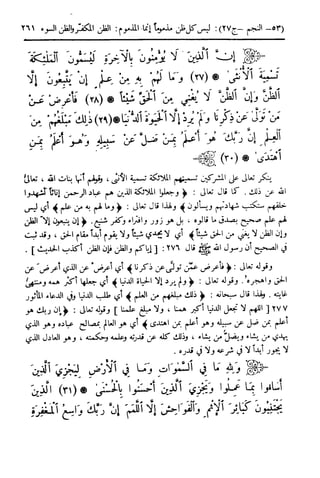 (٥٣- النجم - ج٢٧): ليس كل ظن مذموماً إنما المذموم: الظن المكفر والظن السوء ٢٦١
إِنَّ ٱلَّذِينَ لَا يُؤْمِنُونَ بِٱلْآخِرَةِ لَيُسَمُّونَ ٱلْمَلَٰٓئِكَةَ
تَسْمِيَةَ ٱلْأُنثَىٰ * (٢٧) وَمَا لَهُم بِهِ مِنْ عِلْمٍ إِن يَتَّبِعُونَ إِلَّا
ٱلظَّنَّ وَإِنَّ ٱلظَّنَّ لَا يُغْنِي مِنَ ٱلْحَقِّ شَيْئًا * (٢٨) فَأَعْرِضْ عَن
مَّن تَوَلَّىٰ عَن ذِكْرِنَا وَلَمْ يُرِدْ إِلَّا ٱلْحَيَوٰةَ ٱلدُّنْيَا * (٢٩) ذَٰلِكَ مَبْلَغُهُم مِّنَ
ٱلْعِلْمِ إِنَّ رَبَّكَ هُوَ أَعْلَمُ بِمَن ضَلَّ عَن سَبِيلِهِ وَهُوَ أَعْلَمُ بِمَنِ
ٱهْتَدَىٰ * (٣٠)
ينكر تعالى على المشركين تسميتهم الملائكة تسمية الأنثى ، وقولهم أنها بنات الله ، تعالى
الله عن ذلك . كما قال تعالى : ﴿ وجعلوا الملائكة الذين هم عباد الرحمن إناثاً أشهدوا
خلقهم ستكتب شهادتهم ويسألون ﴾ ولهذا قال تعالى : ﴿ وما لهم به من علم ﴾ أي ليس
لهم علم صحيح يصدق ما قالوه ، بل هو زور وافتراء وكفر شنيع . ﴿ إن يتبعون إلا الظن
وإن الظن لا يغني من الحق شيئاً ﴾ أي لا يجدي شيئاً ولا يقوم أبداً مقام الحق ، وقد ثبت
في الصحيح أن رسول الله ﷺ قال ٢٧٦ : [ إياكم والظن فإن الظن أكذب الحديث ] .
وقوله تعالى : ﴿ فأعرض عمن تولى عن ذكرنا ﴾ أي أعرض عن الذي أعرض عن
الحق واهجره . وقوله تعالى : ﴿ ولم يرد إلا الحياة الدنيا ﴾ أي جعلها أكبر همه ومنتهى
غايته . ولهذا قال سبحانه : ﴿ ذلك مبلغهم من العلم ﴾ أي طلب الدنيا وفي الدعاء المأثور
٢٧٧ [ اللهم لا تجعل الدنيا أكبر همنا ، ولا مبلغ علمنا ] وقوله تعالى : ﴿ إن ربك هو
أعلم بمن ضل عن سبيله وهو أعلم بمن اهتدى ﴾ أي هو العالم بمصالح عباده وهو الذي
يهدي من يشاء ويضل من يشاء ، وذلك كله عن قدرته وعلمه وحكمته ، وهو العادل الذي
لا يجور أبداً لا في شرعه ولا في قدره .
وَلِلَّهِ مَا فِي ٱلسَّمَٰوَٰتِ وَمَا فِي ٱلْأَرْضِ لِيَجْزِيَ ٱلَّذِينَ
أَسَٰٓـُٔوا بِمَا عَمِلُوا وَيَجْزِيَ ٱلَّذِينَ أَحْسَنُوا بِٱلْحُسْنَى * (٣١) ٱلَّذِينَ
يَجْتَنِبُونَ كَبَٰٓئِرَ ٱلْإِثْمِ وَٱلْفَوَٰحِشَ إِلَّا ٱللَّمَمَ إِنَّ رَبَّكَ وَٰسِعُ ٱلْمَغْفِرَةِ